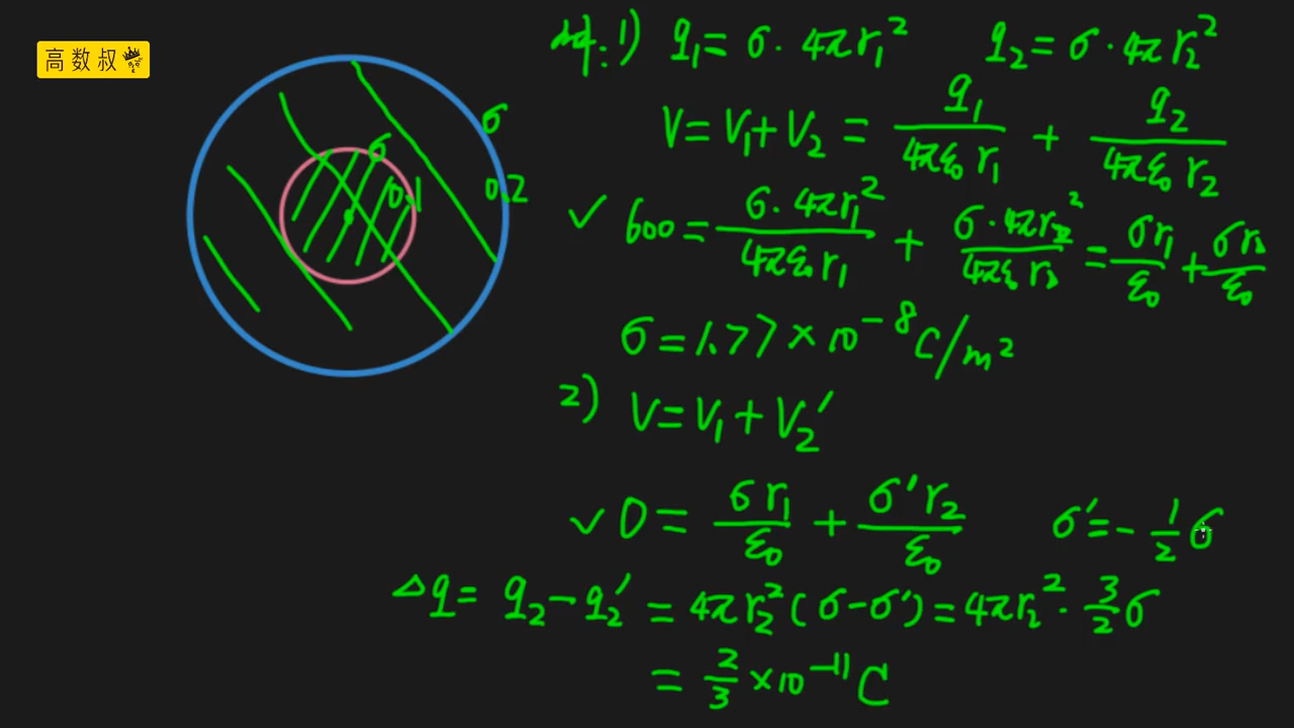 高数叔
σ
σ
0.1
0.2
解:1) q₁=σ·4πr₁² q₂=σ·4πr₂²
V=V₁+V₂=q₁/(4πε₀r₁)+q₂/(4πε₀r₂)
✓ 600=σ·4πr₁²/(4πε₀r₁)+σ·4πr₂²/(4πε₀r₂)=σr₁/ε₀+σr₂/ε₀
σ=1.77×10⁻⁸C/m²
2) V=V₁+V₂′
✓ 0=σr₁/ε₀+σ′r₂/ε₀ σ′=-1/2σ
Δq=q₂-q₂′=4πr₂²(σ-σ′)=4πr₂²·3/2σ
=2/3×10⁻¹¹C